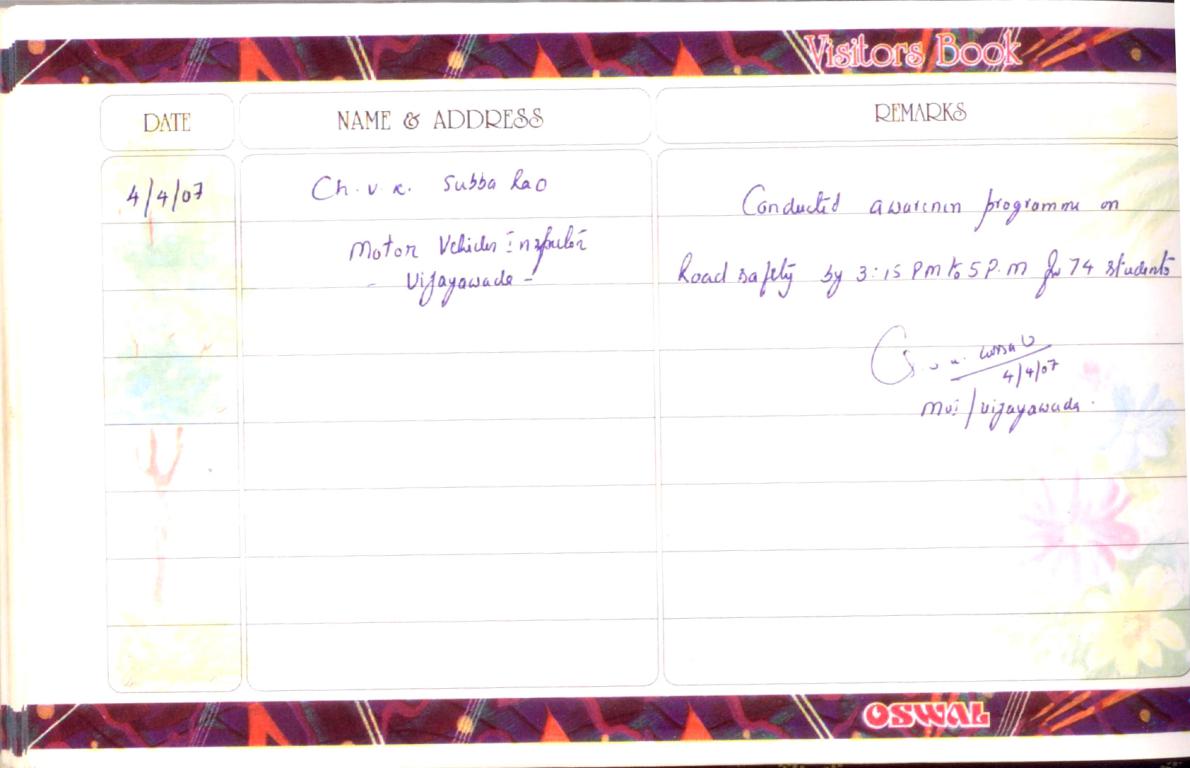 Visitors Book
DATE
NAME & ADDRESS
REMARKS
4/4/07
Ch. v. k. Subba Rao
Motor Vehicles Inspector
- Vijayawada -
Conducted awareness programme on
Road safety by 3:15 PM to 5 P.M for 74 students
4/4/07
Mvi / vijayawada.
OSWAL